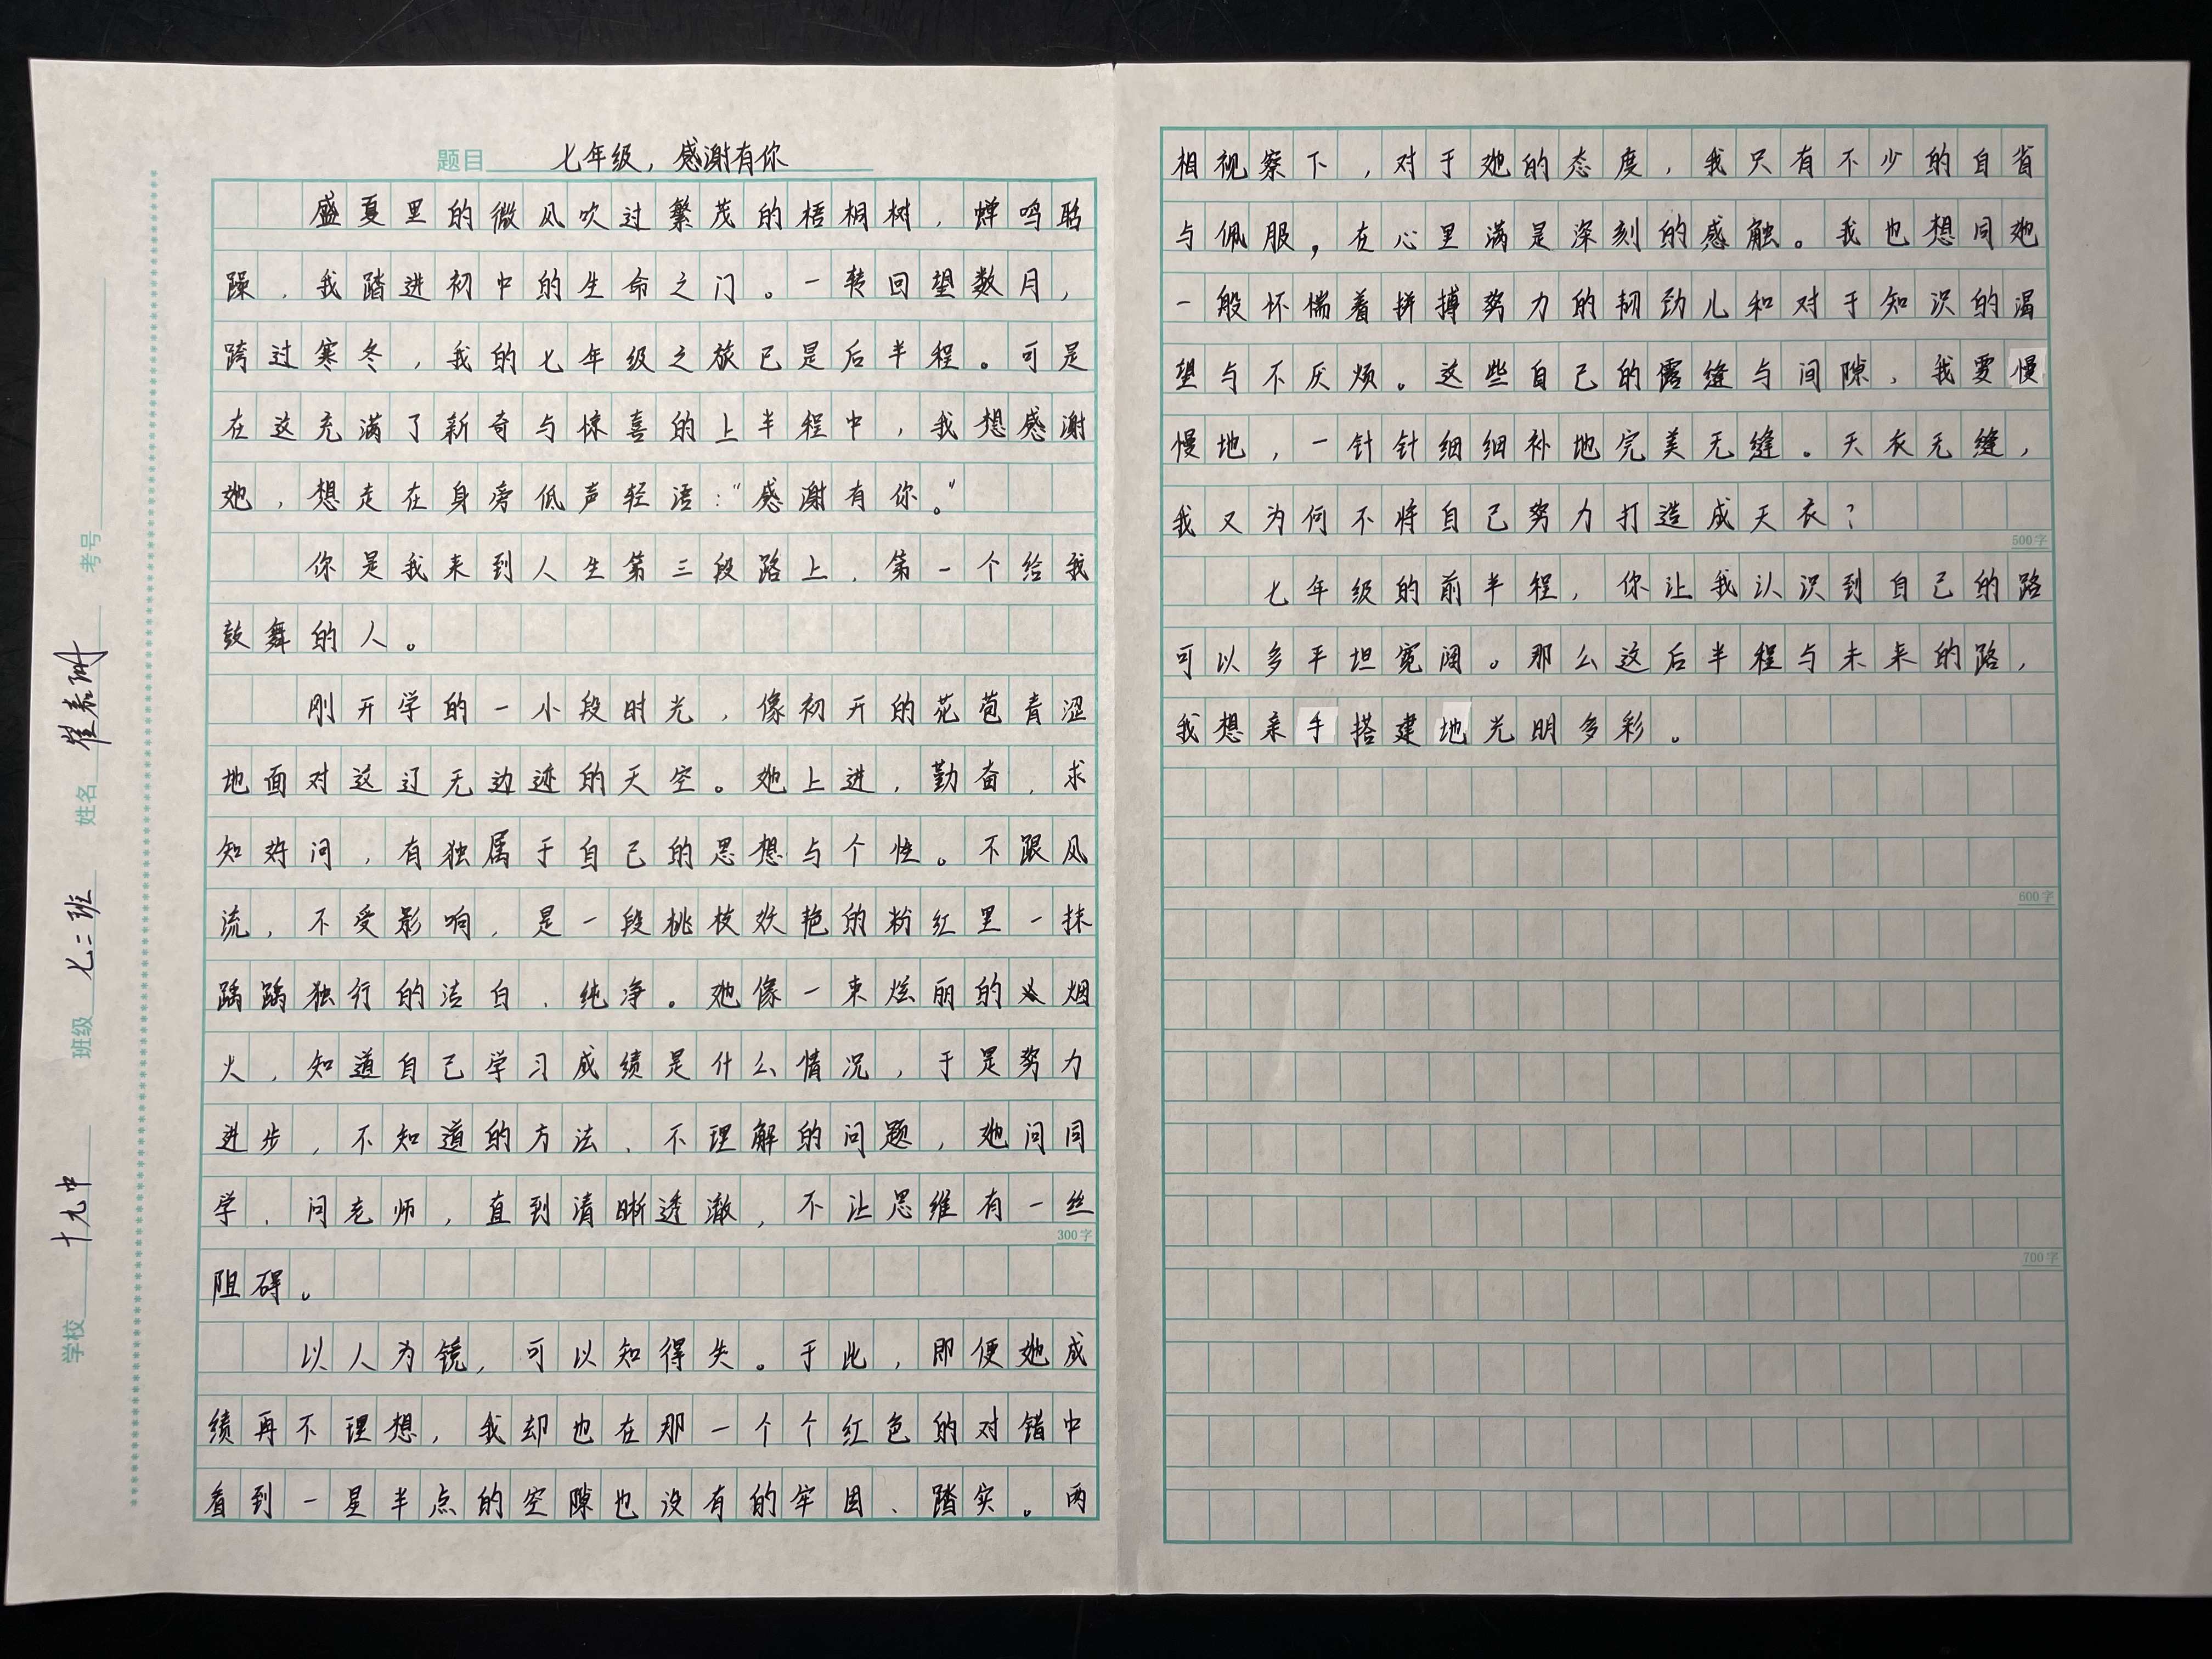 题目 七年级，感谢有你
盛夏里的微风吹过繁茂的梧桐树，蝉鸣聒
躁，我踏进初中的生命之门。一转回望数月，
跨过寒冬，我的七年级之旅已是后半程。可是
在这充满了新奇与惊喜的上半程中，我想感谢
她，想走在身旁低声轻语：“感谢有你。”
你是我来到人生第三段路上，第一个给我
鼓舞的人。
刚开学的一小段时光，像初开的花苞青涩
地面对这辽无边迹的天空。她上进，勤奋，求
知好问，有独属于自己的思想与个性。不跟风
流，不受影响，是一段桃枝效艳的粉红里一抹
踽踽独行的洁白、纯净。她像一束炫丽的烟
火，知道自己学习成绩是什么情况，于是努力
进步，不知道的方法、不理解的问题，她问同
学、问老师，直到清晰透澈，不让思维有一丝
300字
阻碍。
以人为镜，可以知得失。于此，即便她成
绩再不理想，我却也在那一个个红色的对错中
看到一星半点的空隙也没有的牢固、踏实。两
相视察下，对于她的态度，我只有不少的自省
与佩服，在心里满是深刻的感触。我也想同她
一般怀惴着拼搏努力的韧劲儿和对于知识的渴
望与不厌烦。这些自己的露缝与间隙，我要慢
慢地，一针针细细补地完美无缝。天衣无缝，
我又为何不将自己努力打造成天衣？
500字
七年级的前半程，你让我认识到自己的路
可以多平坦宽阔。那么这后半程与未来的路，
我想亲手搭建地光明多彩。
600字
700字
学校 十九中 班级 七二班 姓名 崔 考号